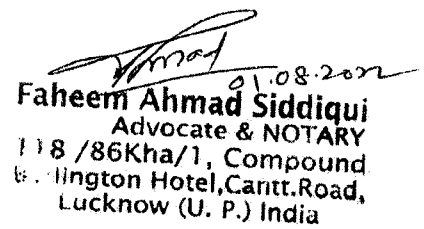 Ahmad
01.08.2022
Faheem Ahmad Siddiqui
Advocate & NOTARY
118 /86Kha/1, Compound
lington Hotel,Cantt.Road,
Lucknow (U. P.) India